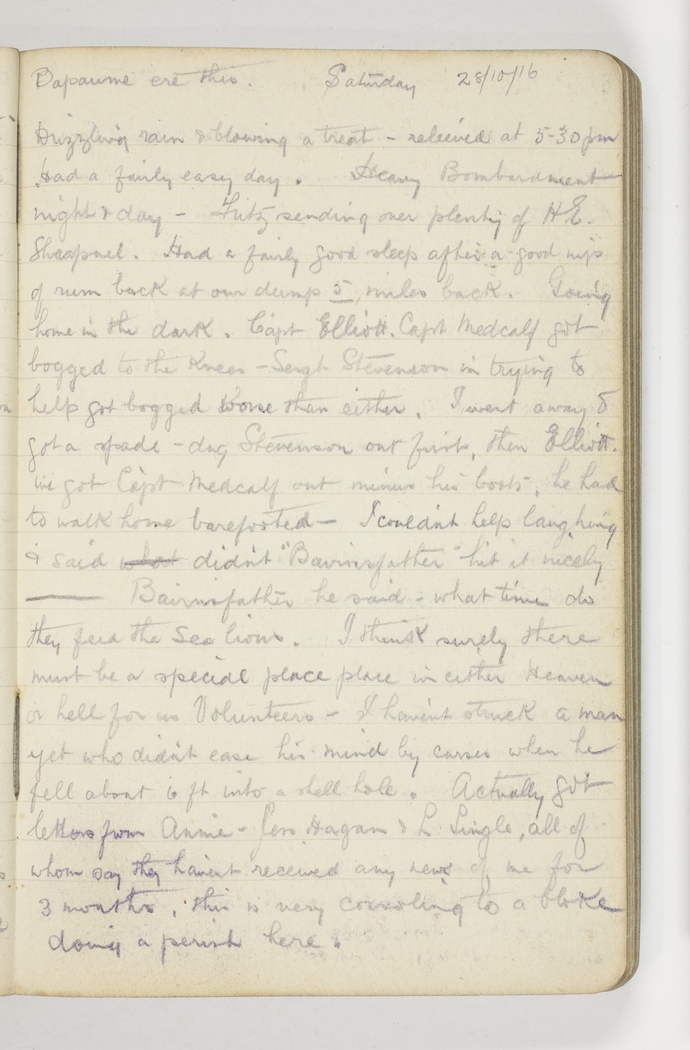 Bapaume ere this. Saturday 28/10/16
Drizzling rain & blowing a treat - relieved at 5-30 pm
Had a fairly easy day. Heavy Bombardment
night & day - Fritz sending over plenty of H.E.
Shrapnel. Had a fairly good sleep after a good nip
of rum back at our dump 5 miles back. Going
home in the dark. Capt Elliott. Capt Medcalf got
bogged to the Knees - Sergt Stevenson in trying to
help got bogged worse than either. I went away &
got a spade - dug Stevenson out first, then Elliott.
we got Capt Medcalf out minus his boots, he had
to walk home barefooted - I couldn't help laughing
& said what didn't "Bavinsfather" hit it nicely
——— Bairnsfather he said - what time do
they feed the Sea lions. I think surely there
must be a special place place in either Heaven
or hell for us Volunteers - I havent struck a man
yet who didn't ease his mind by curses when he
fell about 6 ft into a shell hole. Actually got
letters from Annie - Hagan & L Single, all of
whom say they havent received any news of me for
3 months, this is very consoling to a bloke
doing a perish here.